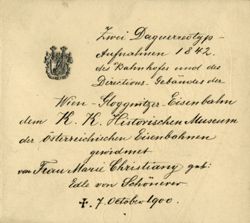 Zwei Daguerreotyp-
Aufnahmen 1842
des Bahnhofes und des
Directions-Gebäudes der
Wien-Gloggnitzer-Eisenbahn
dem K. K. Historischen Museum
der österreichischen Eisenbahnen
gewidmet
von Frau Marie Christiany geb:
Edle von Schönerer
7. October 1900.